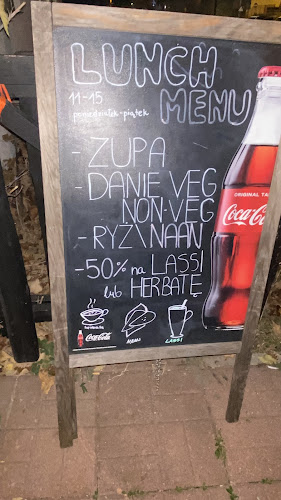 LUNCH
11-15
MENU
poniedziałek-piątek
- ZUPA
- DANIE VEG
NON-VEG
- RYŻ \ NAAN
- 50% na LASSI
lub HERBATĘ
ORIGINAL TA
Coca-Cola
Coca-Cola
MENU
LASSI